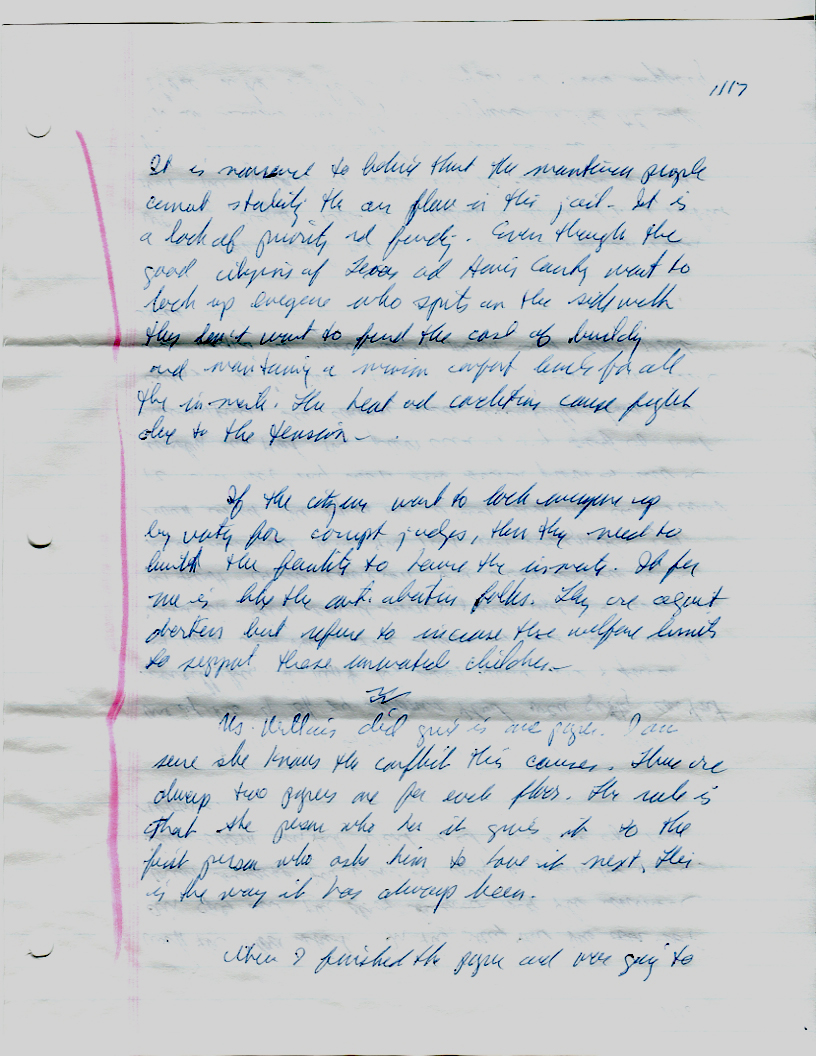 1117
It is nonsense to believe that the maintenance people
cannot stabilize the air flow in this jail. It is
a lack of priority and funding. Even though the
good citizens of Texas and Harris County want to
lock up everyone who spits on the sidewalk
they don't want to fund the cost of building
and maintaining a minimum comfort levels for all
the inmates. The heat and conditions cause fights
due to the tension.
If the citizens want to lock everyone up
by voting for corrupt judges, then they need to
build the facility to house the inmates. It for
me is like the anti abortion folks. They are against
abortion but refuse to increase the welfare limits
to support these unwanted children.
Ms. Williams did give us one paper. I am
sure she knows the conflict this causes. There are
always two papers one for each floor. The rule is
that the person who has it gives it to the
first person who asks him to have it next, this
is the way it has always been.
When I finished the paper and were going to